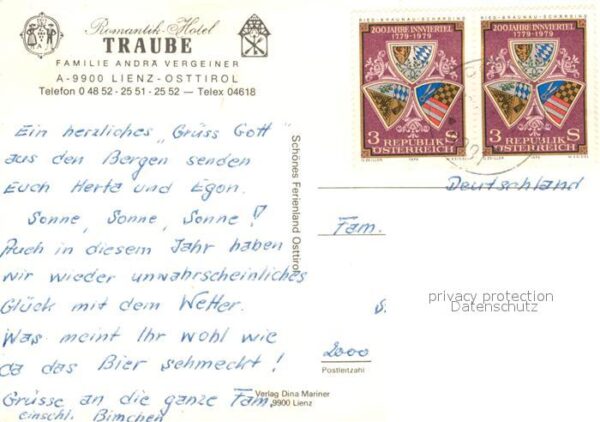 Romantik-Hotel
TRAUBE
FAMILIE ANDRA VERGEINER
A-9900 LIENZ-OSTTIROL
Telefon 0 48 52 - 25 51 - 25 52 — Telex 04618
Ein herzliches „Grüss Gott"
aus den Bergen senden
Euch Herta und Egon.
Sonne, Sonne, Sonne!
Auch in diesem Jahr haben
wir wieder unwahrscheinliches
Glück mit dem Wetter.
Was meint Ihr wohl wie
da das Bier schmeckt!
Grüsse an die ganze Fam.
einschl. Bimchen
Schönes Ferienland Osttirol
Verlag Dina Mariner
9900 Lienz
RIED-BRAUNAU-SCHÄRDING
200 JAHRE INNVIERTEL
1779-1979
3 S
REPUBLIK
ÖSTERREICH
1979
RIED-BRAUNAU-SCHÄRDING
200 JAHRE INNVIERTEL
1779-1979
3 S
REPUBLIK
ÖSTERREICH
1979
Deutschland
Fam.
privacy protection
Datenschutz
2000
Postleitzahl